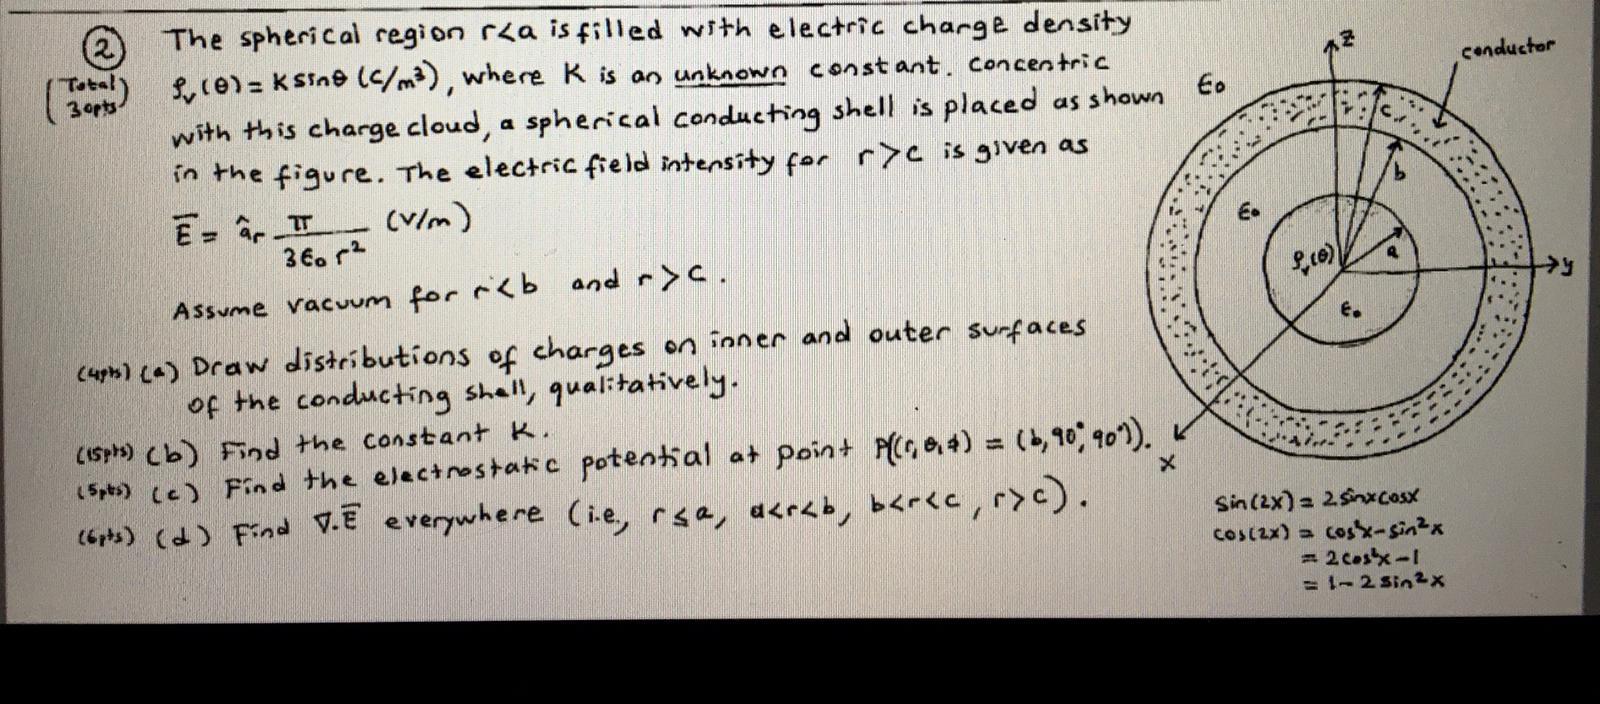 ② The spherical region r<a is filled with electric charge density
(Total 30pts) ρᵥ(θ) = K sinθ (C/m³), where K is an unknown constant. Concentric
with this charge cloud, a spherical conducting shell is placed as shown
in the figure. The electric field intensity for r>c is given as
E̅ = âr π / 3ϵ₀ r² (V/m)
Assume vacuum for r<b and r>c.
(4pts) (a) Draw distributions of charges on inner and outer surfaces
of the conducting shell, qualitatively.
(15pts) (b) Find the constant K.
(5pts) (c) Find the electrostatic potential at point P((r,θ,ϕ) = (b,90°,90°)).
(6pts) (d) Find ∇.E̅ everywhere (i.e., r≤a, a<r<b, b<r<c, r>c).
z
conductor
ϵ₀
c
b
ϵ₀
a
ρᵥ(θ)
y
ϵ₀
x
sin(2x) = 2 sinx cosx
cos(2x) = cos²x-sin²x
= 2cos²x-1
= 1-2 sin²x